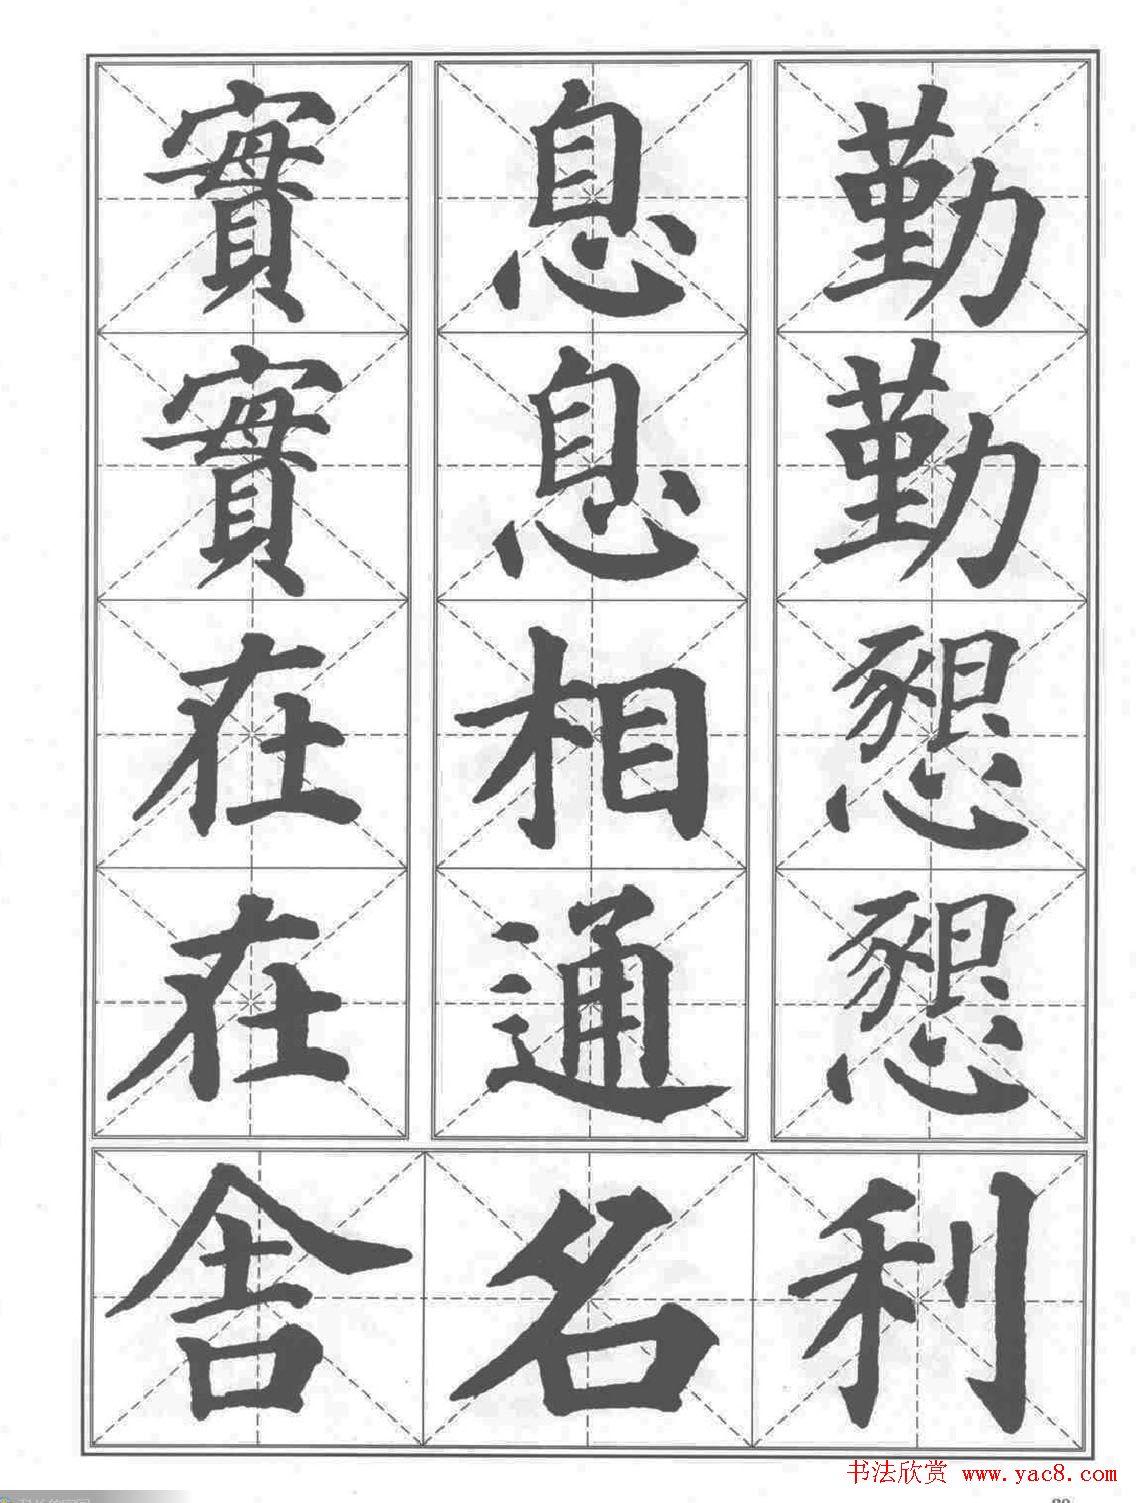 勤勤懇懇
息息相通
實實在在
舍名利
书法欣赏 www.yac8.com